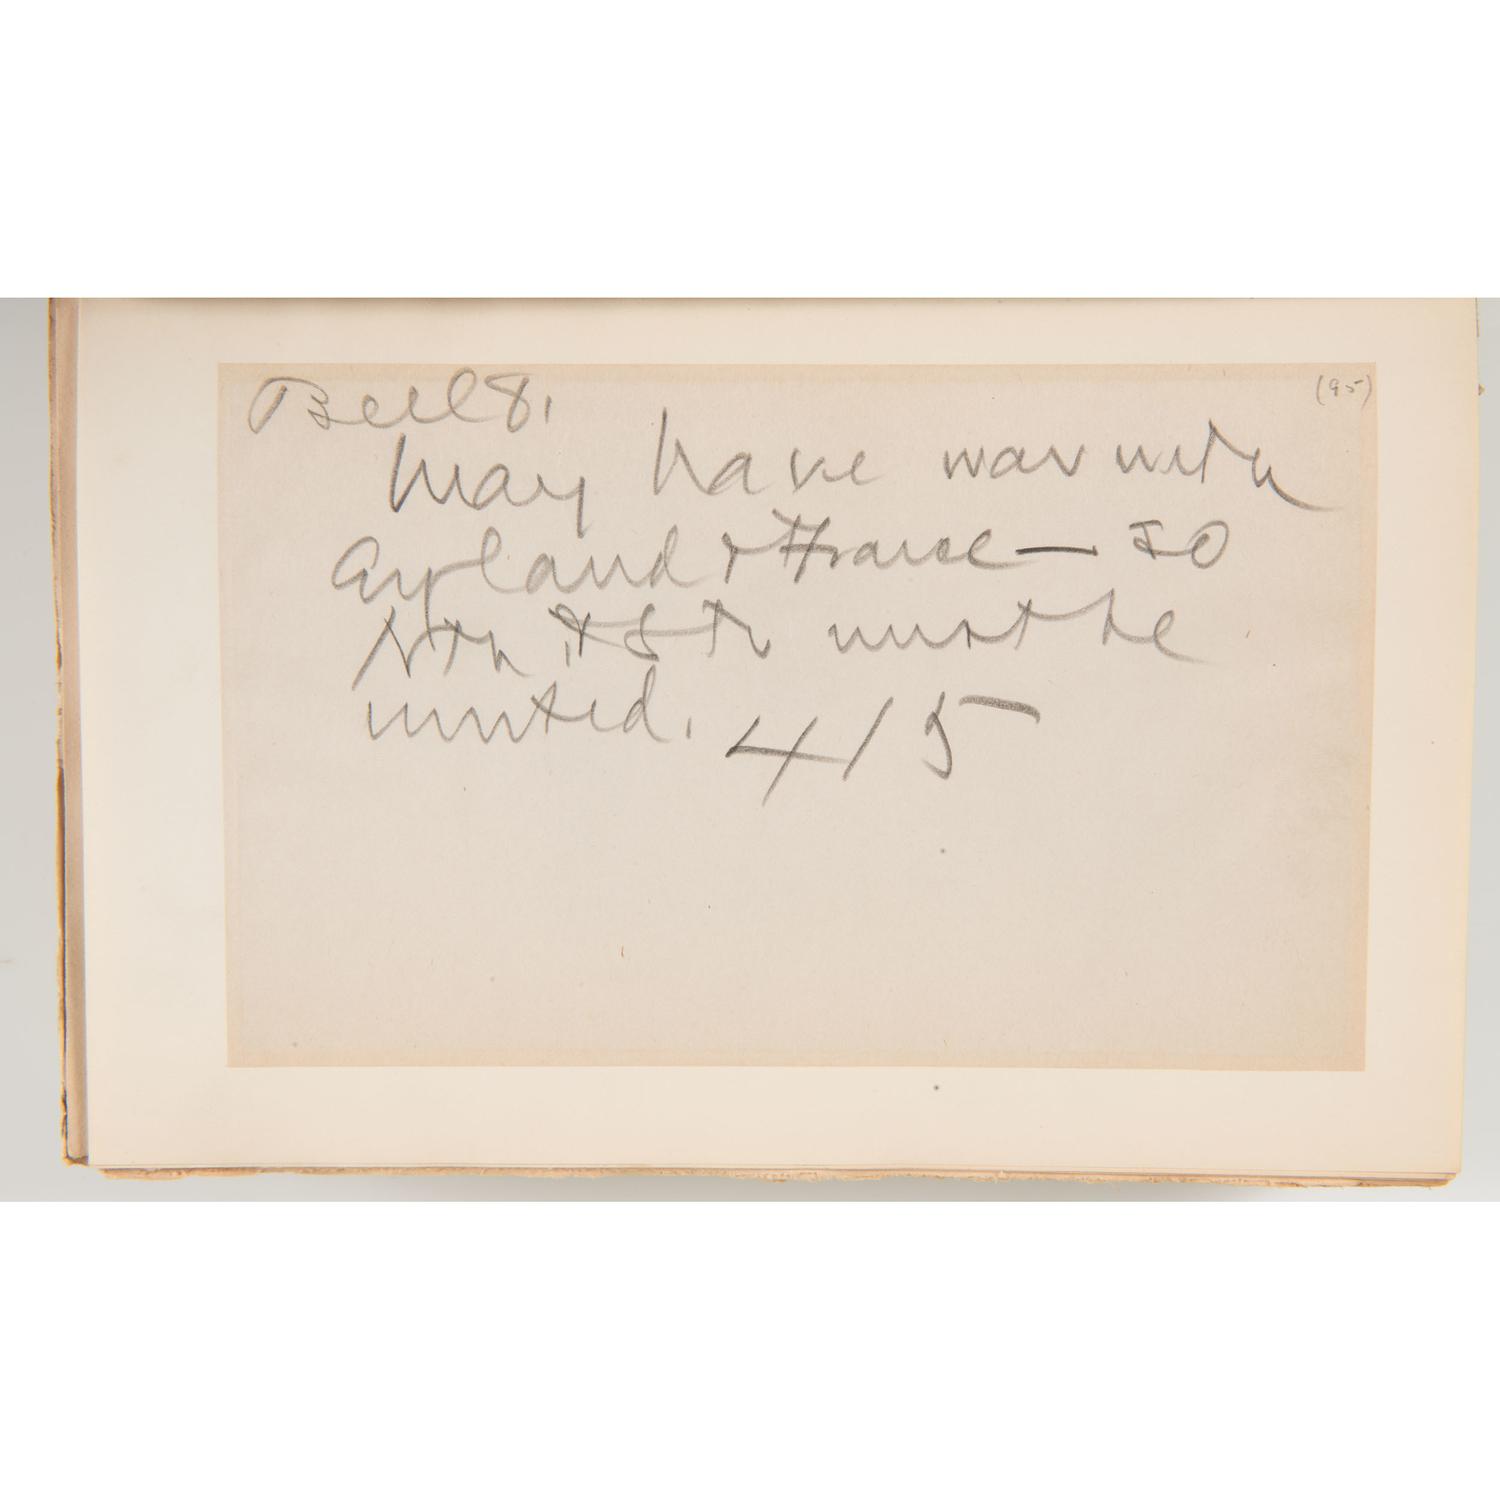 Bull 8.
(95)
May have war with
England & France — so
Nth & Sth must be
united. 4/5